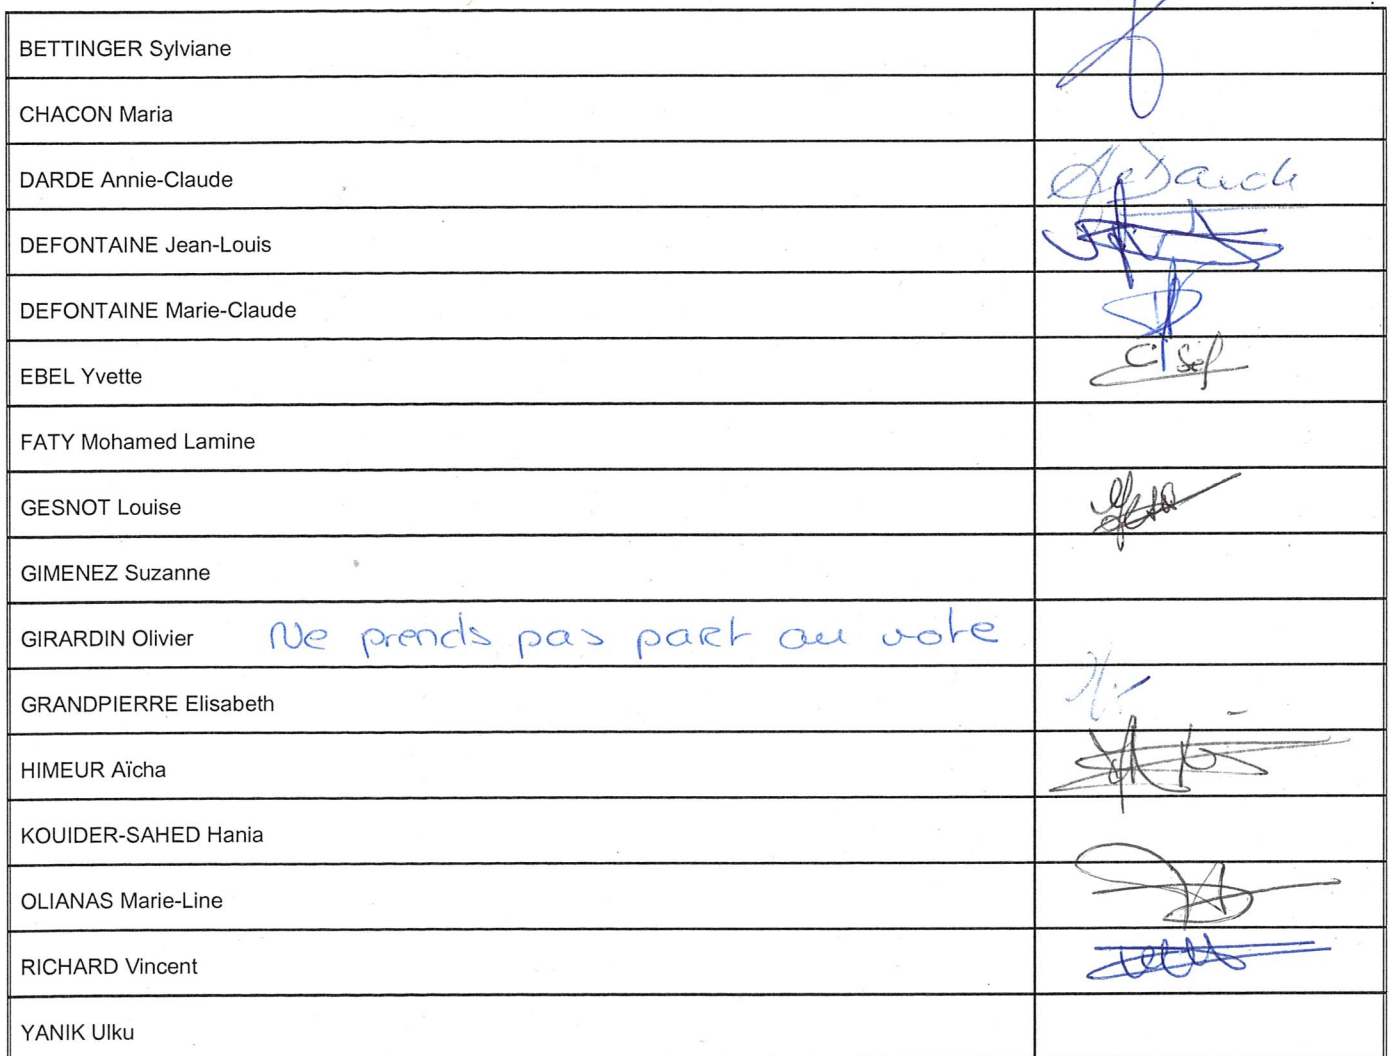 BETTINGER Sylviane
CHACON Maria
DARDE Annie-Claude
DEFONTAINE Jean-Louis
DEFONTAINE Marie-Claude
EBEL Yvette
FATY Mohamed Lamine
GESNOT Louise
GIMENEZ Suzanne
GIRARDIN Olivier Ne prends pas part au vote
GRANDPIERRE Elisabeth
HIMEUR Aïcha
KOUIDER-SAHED Hania
OLIANAS Marie-Line
RICHARD Vincent
YANIK Ulku